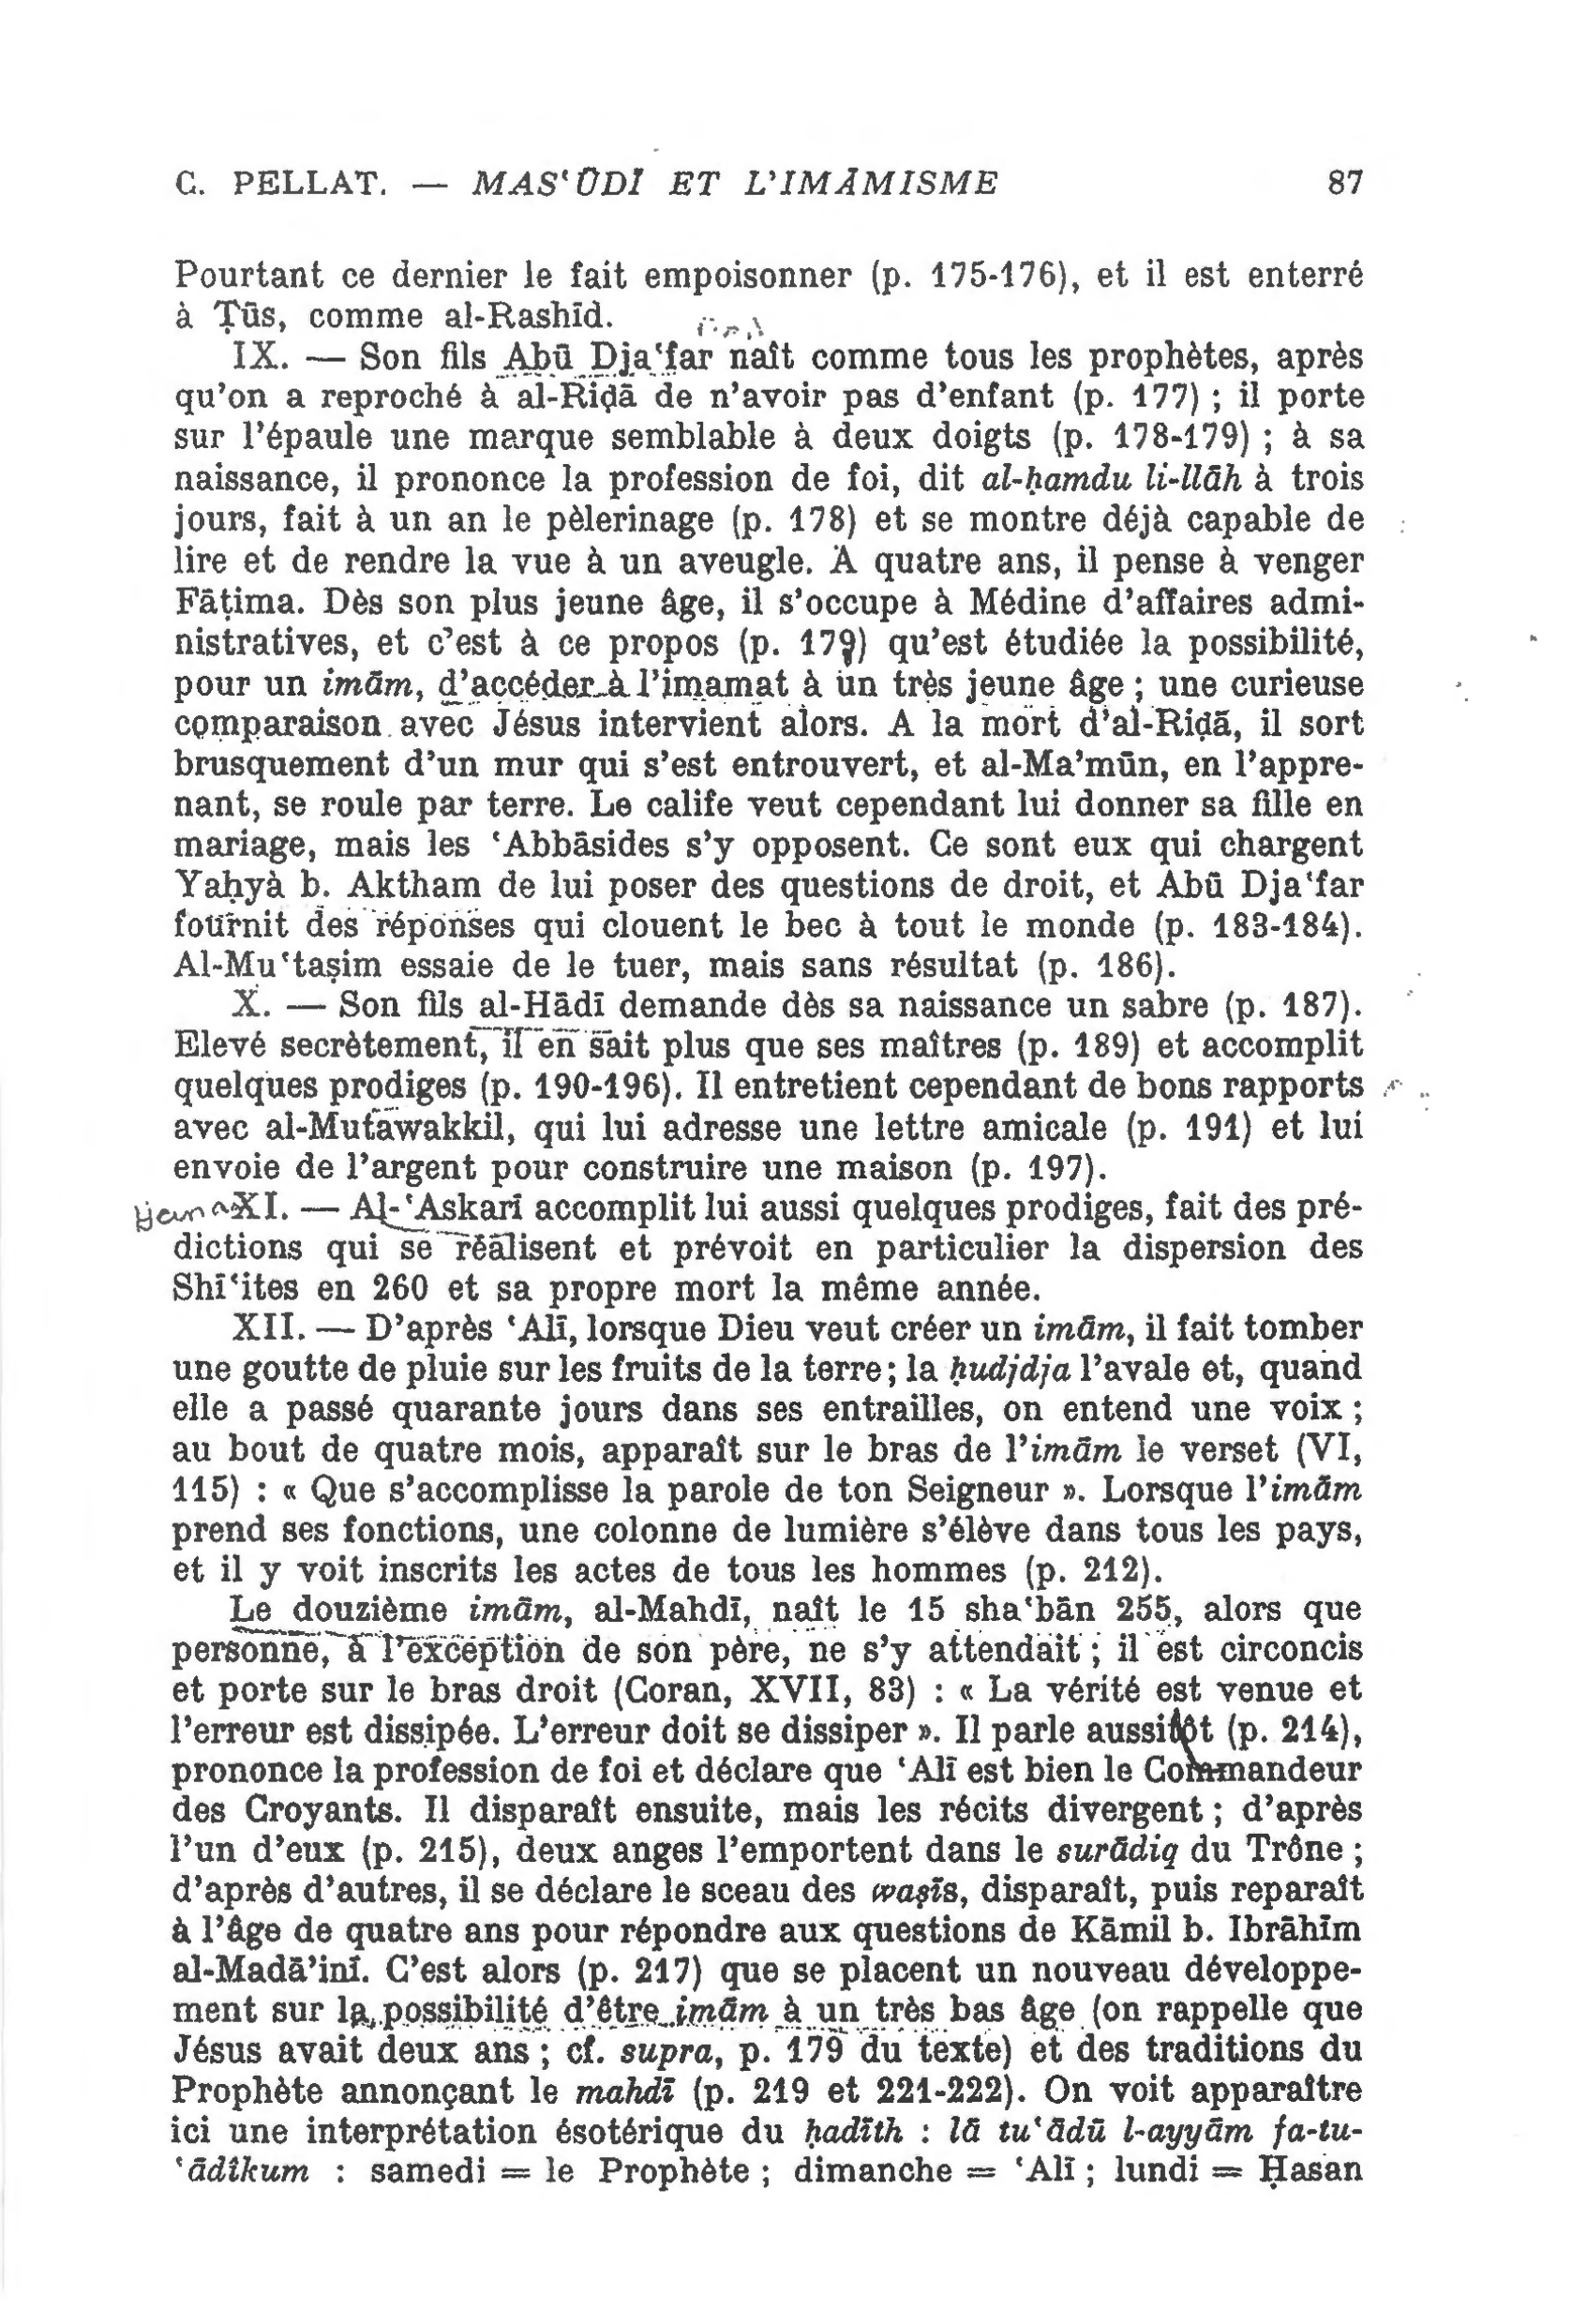 C. PELLAT. — MAS‘ŪDĪ ET L’IMĀMISME 87
Pourtant ce dernier le fait empoisonner (p. 175-176), et il est enterré
à Ṭūs, comme al-Rashīd.
IX. — Son fils Abū Dja‘far naît comme tous les prophètes, après
qu’on a reproché à al-Riḍā de n’avoir pas d’enfant (p. 177) ; il porte
sur l’épaule une marque semblable à deux doigts (p. 178-179) ; à sa
naissance, il prononce la profession de foi, dit al-ḥamdu li-llāh à trois
jours, fait à un an le pèlerinage (p. 178) et se montre déjà capable de
lire et de rendre la vue à un aveugle. A quatre ans, il pense à venger
Fāṭima. Dès son plus jeune âge, il s’occupe à Médine d’affaires admi-
nistratives, et c’est à ce propos (p. 179) qu’est étudiée la possibilité,
pour un imām, d’accéder à l’imamat à un très jeune âge ; une curieuse
comparaison avec Jésus intervient alors. A la mort d’al-Riḍā, il sort
brusquement d’un mur qui s’est entrouvert, et al-Ma’mūn, en l’appre-
nant, se roule par terre. Le calife veut cependant lui donner sa fille en
mariage, mais les ‘Abbāsides s’y opposent. Ce sont eux qui chargent
Yaḥyà b. Aktham de lui poser des questions de droit, et Abū Dja‘far
fournit des réponses qui clouent le bec à tout le monde (p. 183-184).
Al-Mu‘taṣim essaie de le tuer, mais sans résultat (p. 186).
X. — Son fils al-Hādī demande dès sa naissance un sabre (p. 187).
Elevé secrètement, il en sait plus que ses maîtres (p. 189) et accomplit
quelques prodiges (p. 190-196). Il entretient cependant de bons rapports
avec al-Mutawakkil, qui lui adresse une lettre amicale (p. 191) et lui
envoie de l’argent pour construire une maison (p. 197).
XI. — Al-‘Askarī accomplit lui aussi quelques prodiges, fait des pré-
dictions qui se réalisent et prévoit en particulier la dispersion des
Shī‘ites en 260 et sa propre mort la même année.
XII. — D’après ‘Alī, lorsque Dieu veut créer un imām, il fait tomber
une goutte de pluie sur les fruits de la terre ; la ḥudjdja l’avale et, quand
elle a passé quarante jours dans ses entrailles, on entend une voix ;
au bout de quatre mois, apparaît sur le bras de l’imām le verset (VI,
115) : « Que s’accomplisse la parole de ton Seigneur ». Lorsque l’imām
prend ses fonctions, une colonne de lumière s’élève dans tous les pays,
et il y voit inscrits les actes de tous les hommes (p. 212).
Le douzième imām, al-Mahdī, naît le 15 sha‘bān 255, alors que
personne, à l’exception de son père, ne s’y attendait ; il est circoncis
et porte sur le bras droit (Coran, XVII, 83) : « La vérité est venue et
l’erreur est dissipée. L’erreur doit se dissiper ». Il parle aussitôt (p. 214),
prononce la profession de foi et déclare que ‘Alī est bien le Commandeur
des Croyants. Il disparaît ensuite, mais les récits divergent ; d’après
l’un d’eux (p. 215), deux anges l’emportent dans le surādiq du Trône ;
d’après d’autres, il se déclare le sceau des waṣīs, disparaît, puis reparaît
à l’âge de quatre ans pour répondre aux questions de Kāmil b. Ibrāhīm
al-Madā’inī. C’est alors (p. 217) que se placent un nouveau développe-
ment sur la possibilité d’être imām à un très bas âge (on rappelle que
Jésus avait deux ans ; cf. supra, p. 179 du texte) et des traditions du
Prophète annonçant le mahdī (p. 219 et 221-222). On voit apparaître
ici une interprétation ésotérique du ḥadīth : lā tu‘ādū l-ayyām fa-tu-
‘ādīkum : samedi = le Prophète ; dimanche = ‘Alī ; lundi = Ḥasan